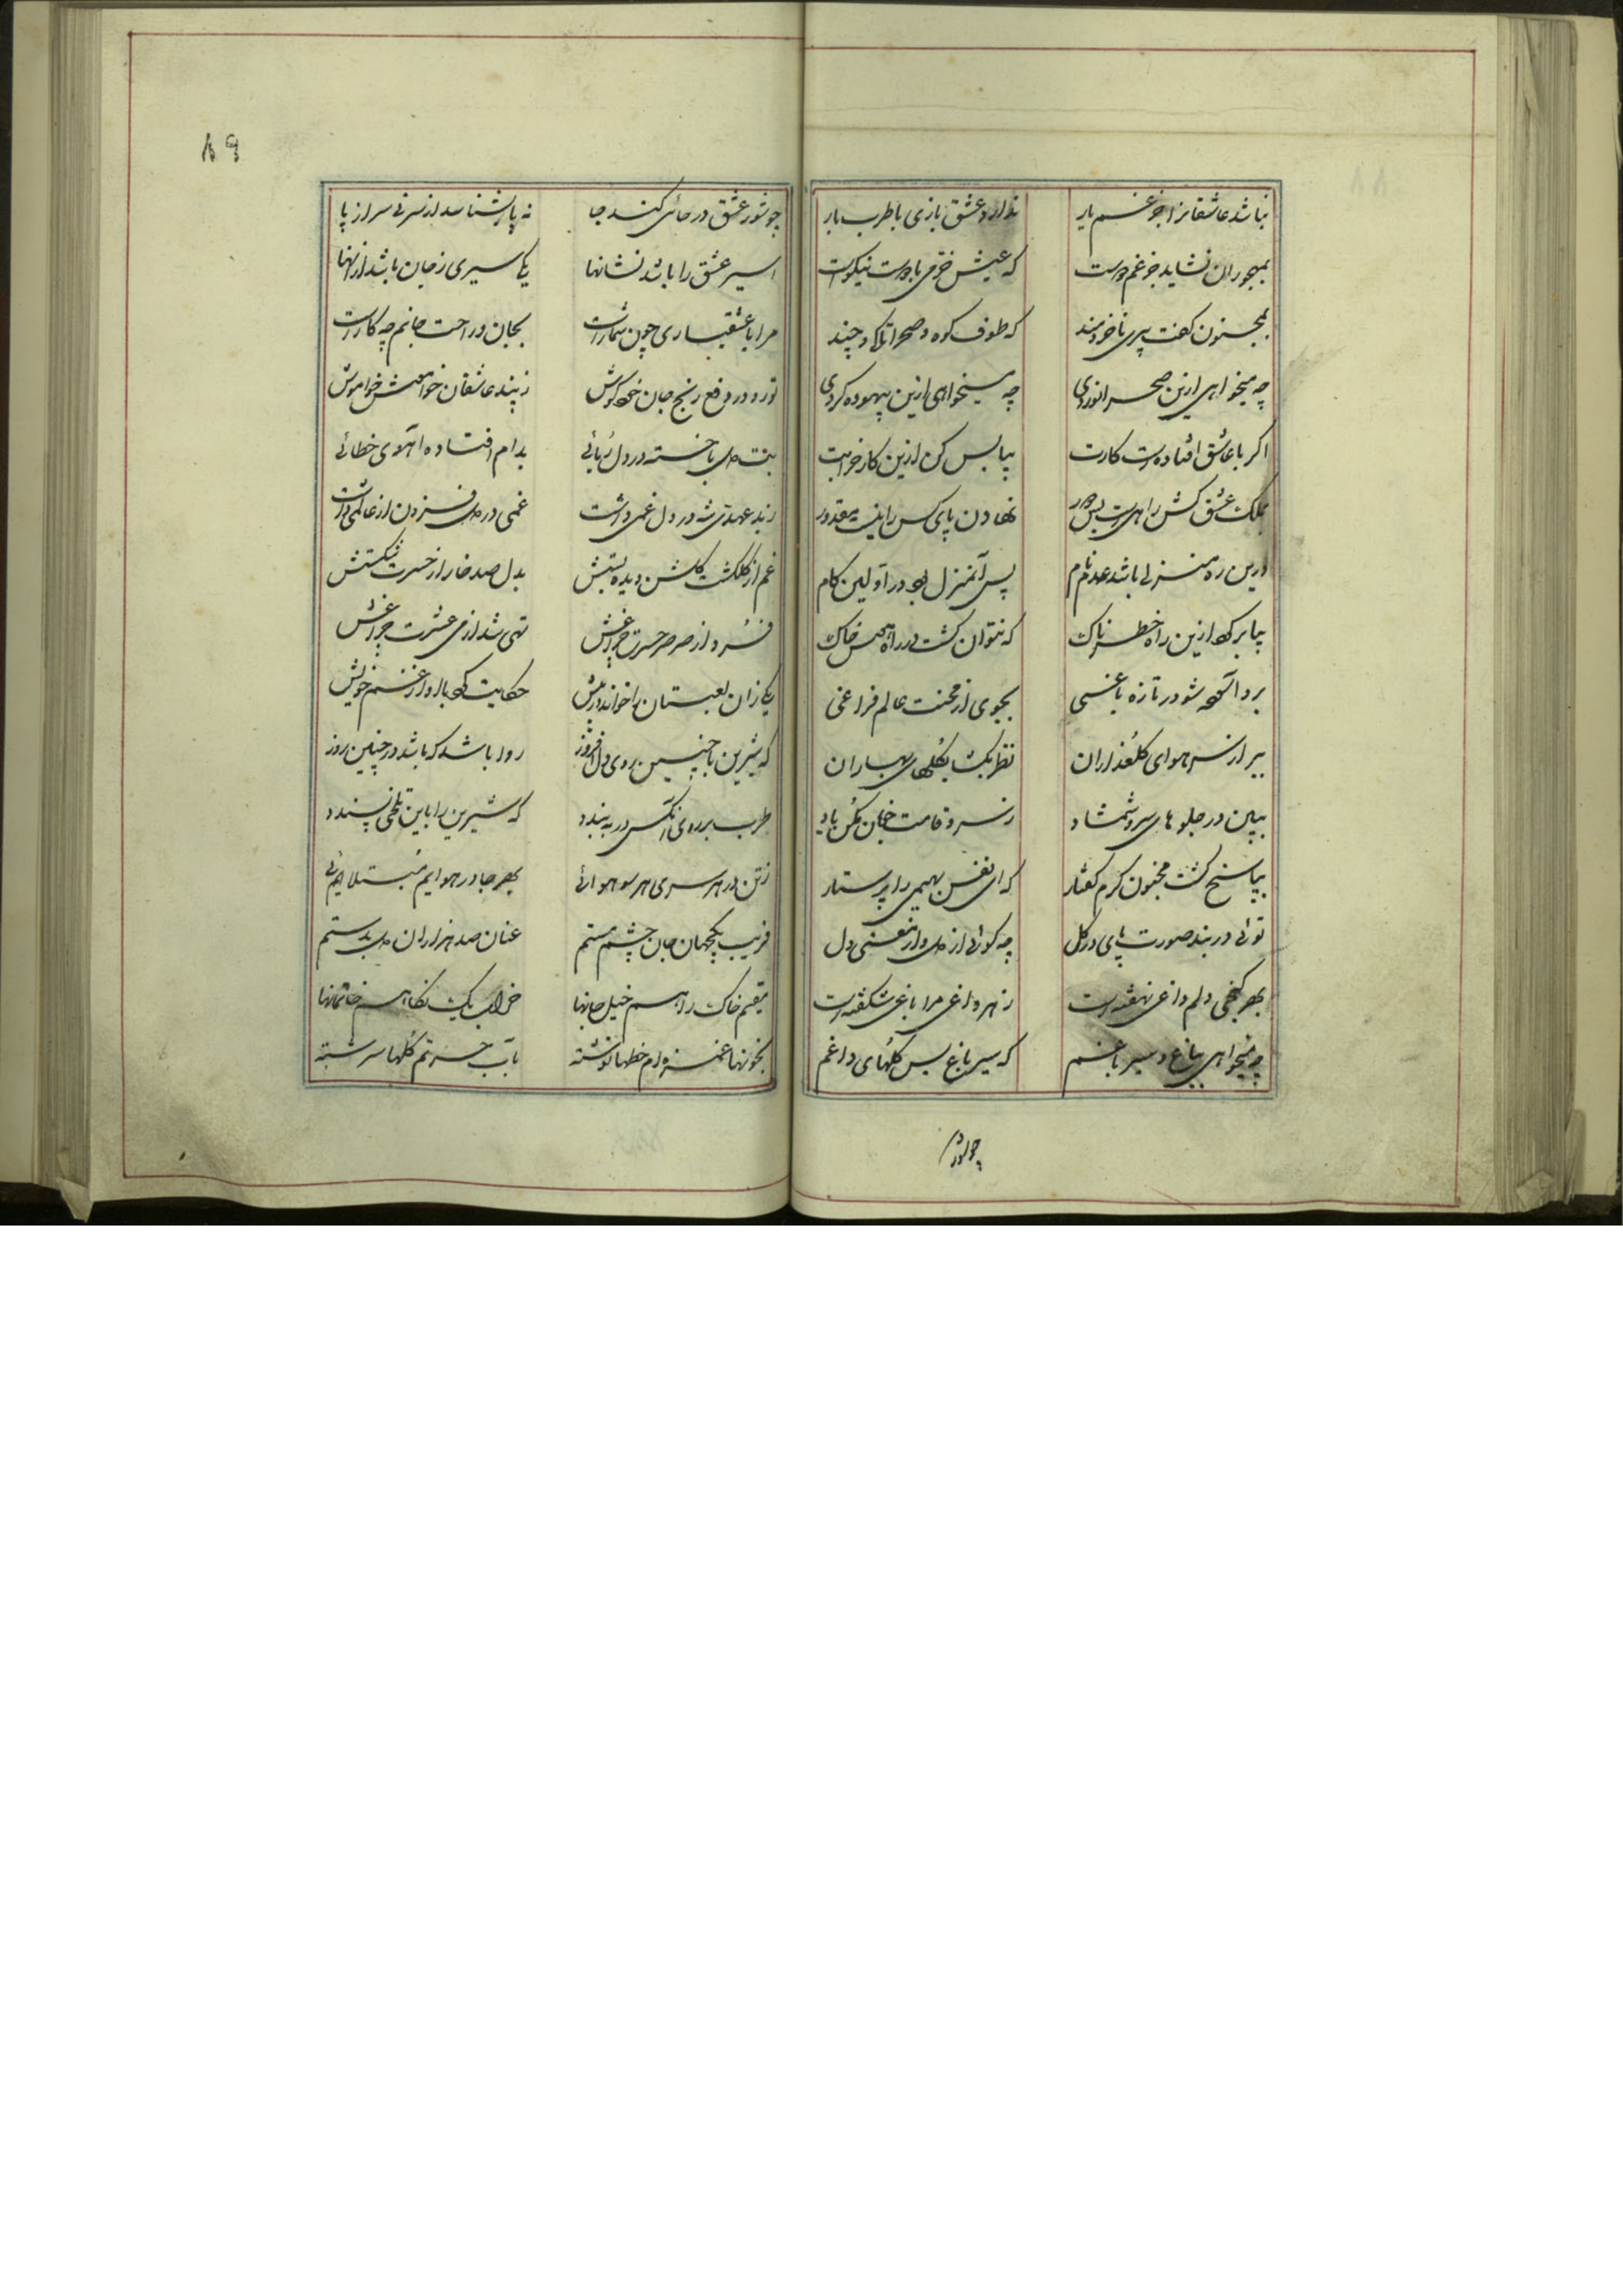 نباشد عاشقانرا جز غم یار ندارد عشق بازی با طرب بار
بمهجوران نشاید جز غم دوست که عیش خرمی با دوست نیکوست
بمجنون گفت پیری ناخردمند که طوف کوه و صحرا تا کی و چند
چه میخواهی ازین صحرانوردی چه میخواهی ازین بیهوده کردی
اگر با عاشقی افتاده است کارت بیا بس کن ازین کار
بملک عشق کش راهیست بس دور نهادن پای کس را نیست مقدور
درین ره منزلی باشد عدم نام پس آنمنزل بود در اولین کام
بیا برگرد ازین راه خطرناک که نتوان گشت در راه خاک
برو آسوده شو در تازه باغی بجوی از محنت عالم فراغی
ببر از سر هوای گلعذاران نظر بگشا بگلهای بهاران
ببین در جلوهای سرو و شمشاد ز سرو قامت خوبان مکن یاد
بپاسخ گشت مجنون گرم گفتار که ای نفس بهیمی را پرستار
توئی در بند صورت پای در گل چه گوئی از دل و از معنی دل
بهر کنجی دلم داغی نهفته است ز هر داغی مرا باغی شکفته است
چه میخواهی بباغ و سیر باغم که سیر باغ بس گلهای داغم
چو شور

٨٩
چو شور عشق در جائی کند جا نه پا بشناسد از سر نی سر از پا
اسیر عشق را باشد نشانها یکی سیری ز جان باشد از آنها
مرا با عشقبازی چون شمار است بجان و راحت جانم چه کار است
تو رو در دفع رنج جان خود کوش ز پند عاشقان خواهمش خاموش
دل باخسته در دل ربائی بدام افتاده آهوی خطائی
ز بد عهدی شه در دل غمی داشت غمی در دل فزون از عالمی داشت
غم از گلگشت گلشن دیده بستش بدل صد خار از حسرت شکستش
فسرد از صرصر حسرت چراغش تهی شد از می عشرت
یکی زان لعبتان را خواند در پیش حکایت کرد با او از غم خویش
که شیرین با چنین روی دل افروز روا باشد که باشد در چنین روز
طرب بر روی آنکس در ببندد که شیرین را باین تلخی پسندد
ز تن در هر سری هر سو هوائی بهر جا در هوایم مبتلائی
فریب یکجهان جان چشم مستم عنان صد هزاران دل بدستم
مقیم خاک راهم خیل جانها خراب یک نگاهم خانمانها
بخونها غمزه ام خطها نوشته بآب حسرتم گلها سرشته